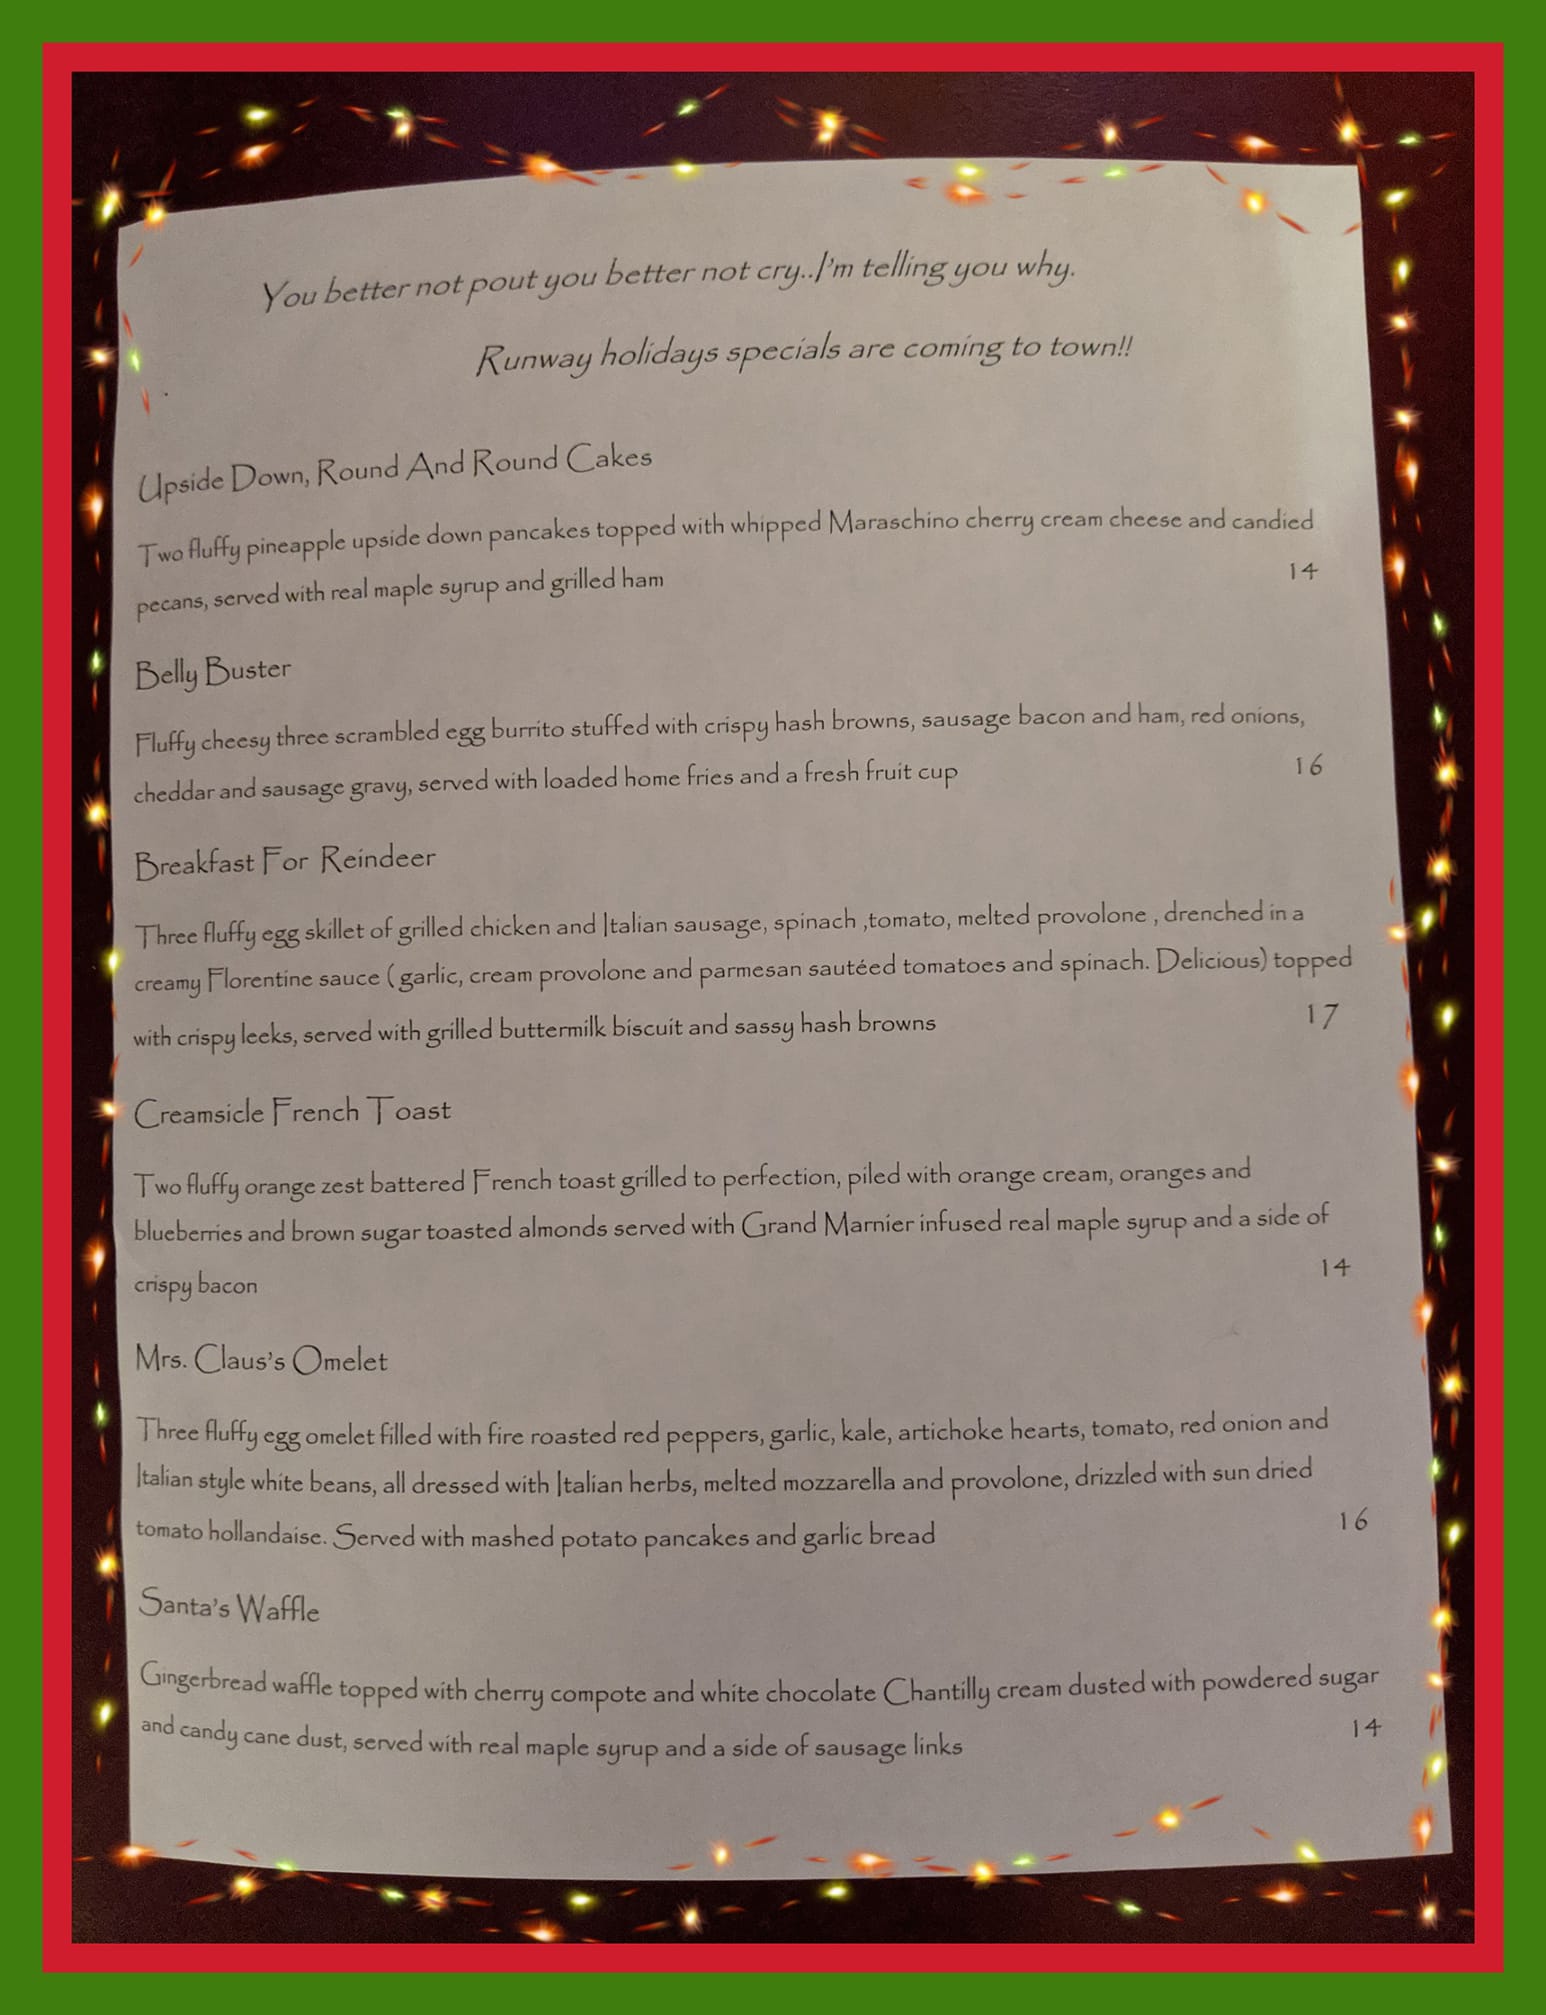 You better not pout you better not cry..I'm telling you why.
Runway holidays specials are coming to town!!
Upside Down, Round And Round Cakes
Two fluffy pineapple upside down pancakes topped with whipped Maraschino cherry cream cheese and candied
pecans, served with real maple syrup and grilled ham 14
Belly Buster
Fluffy cheesy three scrambled egg burrito stuffed with crispy hash browns, sausage bacon and ham, red onions,
cheddar and sausage gravy, served with loaded home fries and a fresh fruit cup 16
Breakfast For Reindeer
Three fluffy egg skillet of grilled chicken and Italian sausage, spinach ,tomato, melted provolone , drenched in a
creamy Florentine sauce ( garlic, cream provolone and parmesan sautéed tomatoes and spinach. Delicious) topped
with crispy leeks, served with grilled buttermilk biscuit and sassy hash browns 17
Creamsicle French Toast
Two fluffy orange zest battered French toast grilled to perfection, piled with orange cream, oranges and
blueberries and brown sugar toasted almonds served with Grand Marnier infused real maple syrup and a side of
crispy bacon 14
Mrs. Claus's Omelet
Three fluffy egg omelet filled with fire roasted red peppers, garlic, kale, artichoke hearts, tomato, red onion and
Italian style white beans, all dressed with Italian herbs, melted mozzarella and provolone, drizzled with sun dried
tomato hollandaise. Served with mashed potato pancakes and garlic bread 16
Santa's Waffle
Gingerbread waffle topped with cherry compote and white chocolate Chantilly cream dusted with powdered sugar
and candy cane dust, served with real maple syrup and a side of sausage links 14